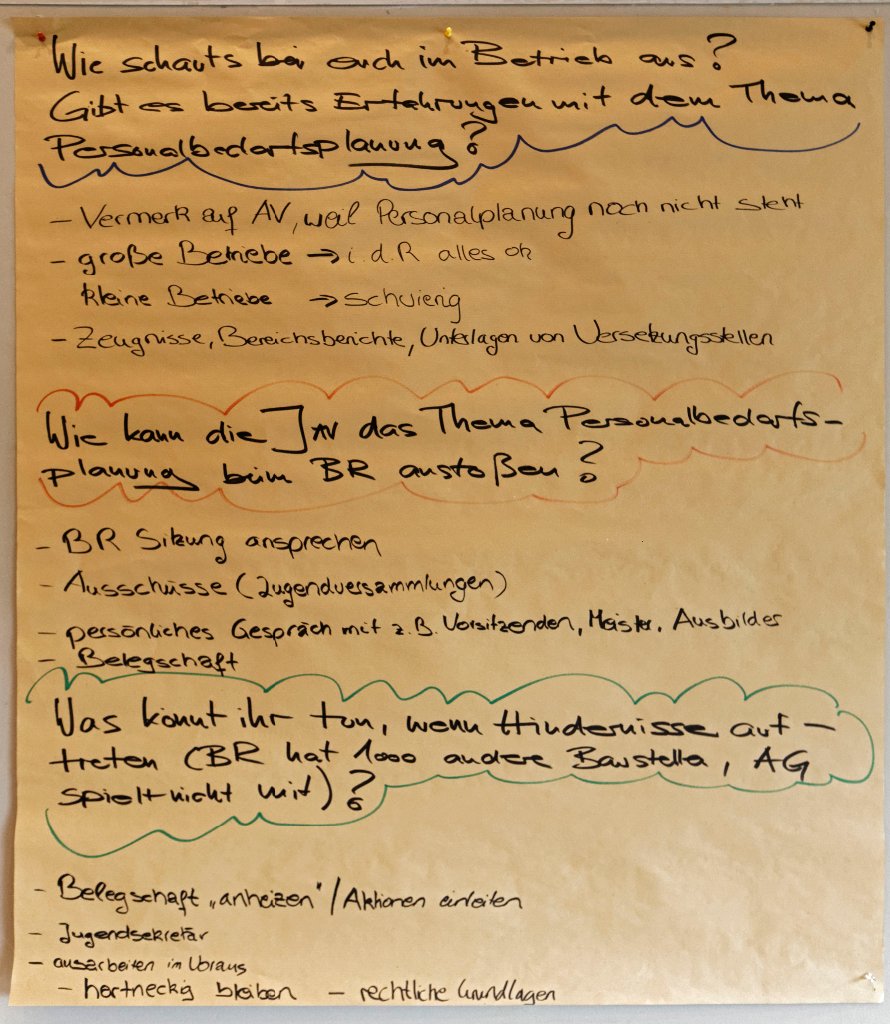 Wie schauts bei euch im Betrieb aus?
Gibt es bereits Erfahrungen mit dem Thema
Personalbedarfsplanung?
- Vermerk auf AV, weil Personalplanung noch nicht steht
- große Betriebe → i.d.R alles ok
kleine Betriebe → schwierig
- Zeugnisse, Bereichsberichte, Unterlagen von Versetzungsstellen
Wie kann die JAV das Thema Personalbedarfs-
planung beim BR anstoßen?
- BR Sitzung ansprechen
- Ausschüsse (Jugendversammlungen)
- persönliches Gespräch mit z.B. Vorsitzenden, Meister, Ausbilder
- Belegschaft
Was könnt ihr tun, wenn Hindernisse auf-
treten (BR hat 1000 andere Baustellen, AG
spielt nicht mit)?
- Belegschaft „anheizen" / Aktionen einleiten
- Jugendsekretär
- ausarbeiten im Voraus
- hartneckig bleiben - rechtliche Grundlagen